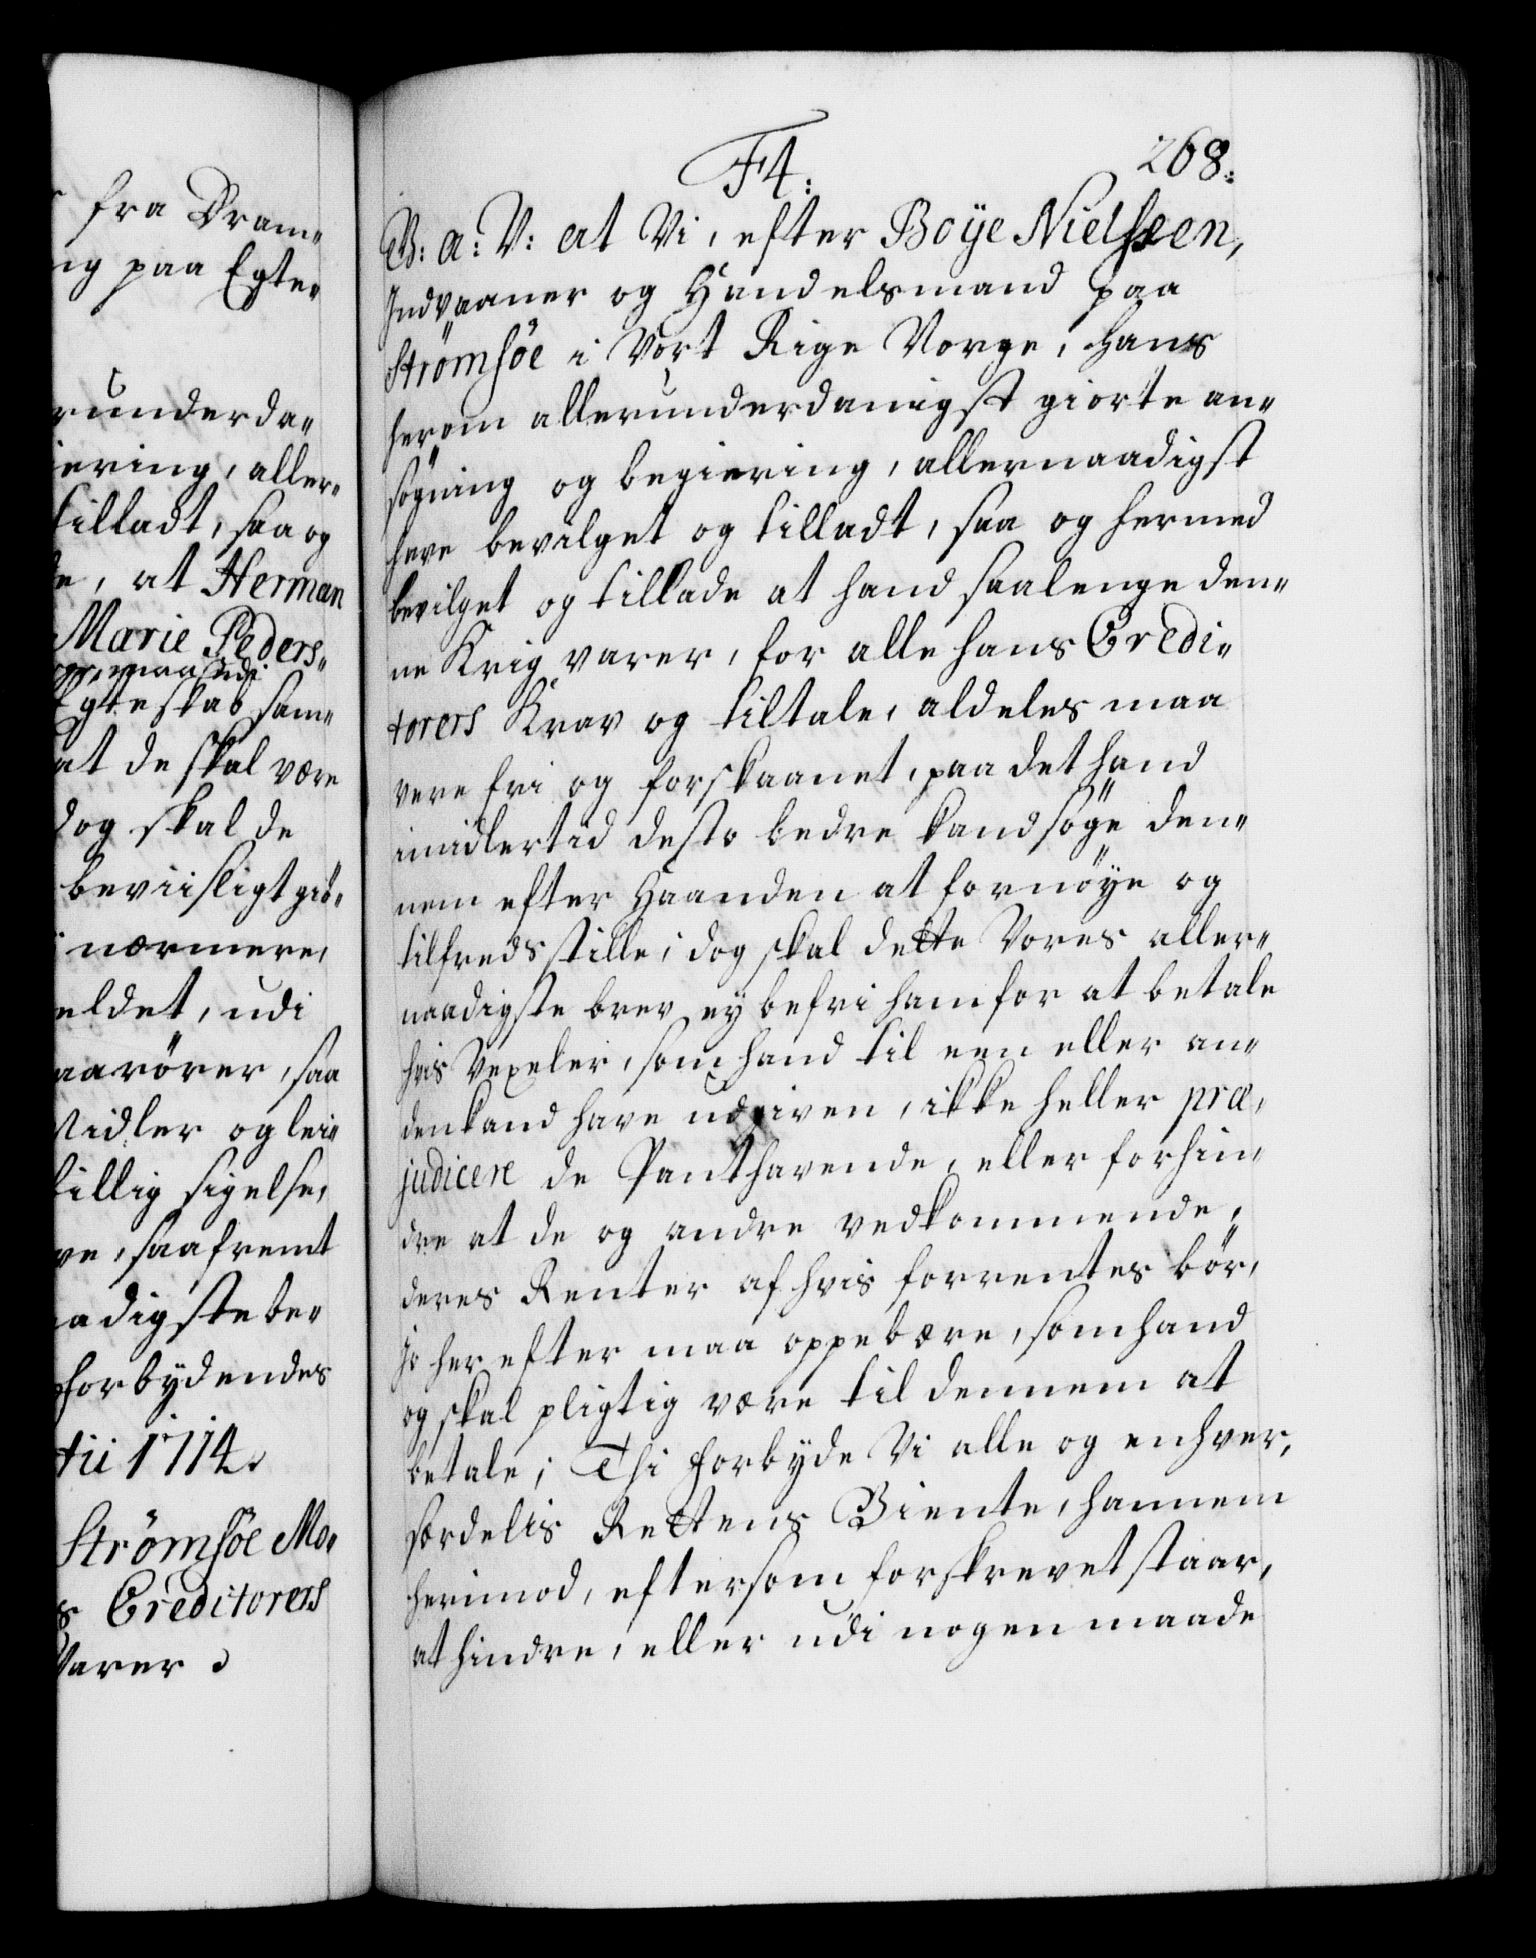 fra Dram„
ng paa Egte„
runderda„
iering, aller„
tilladt, saa og
de, at Herman
Marie Peders„
maa udi
Egteskab sam„
at de skal være
dog skal de
beviisligt giö„
i nærmere,
eldet, udi
aarörer, saa
Midler og lei„
tillig sigelse,
ve, saafremt
aadigste be„
Forbydendes
tii 1714.
Strömsöe Mo„
s Creditorers
Varer
F4:
268.
G: a: V: at Vi, efter Boÿe Nielssen,
Indvaaner og Handelsmand paa
Strömsöe i Vort Rige Norge, hans
herom allerunderdanigst giorte an„
sögning og begiering, allernaadigst
have bevilget og tilladt, saa og hermed
bevilget og tillade at hand saalenge den„
ne Krig varer, for alle hans Credi„
torers Krav og tiltale, aldeles maa
vere fri og forskaanet, paa det hand
imidlertid desto bedre kand söge den„
nem efter Haanden at fornöye og
tilfredsstille; dog skal dette Vores aller„
naadigste brev ey befri ham for at betale
hvis Vexeler, som hand til een eller an„
den kand have udgiven, ikke heller præ„
judicere de Panthavende, eller forhin„
dre at de og andre vedkommende,
deres Renter af hvis forrentes bör,
jo her efter maa oppebære, som hand
og skal pligtig være til dennem at
betale; Thi Forbyde Vi alle og enhver,
særdelis Rettens Biente, hannem
herimod, eftersom forskrevet staar,
at hindre, eller udi nogen maade